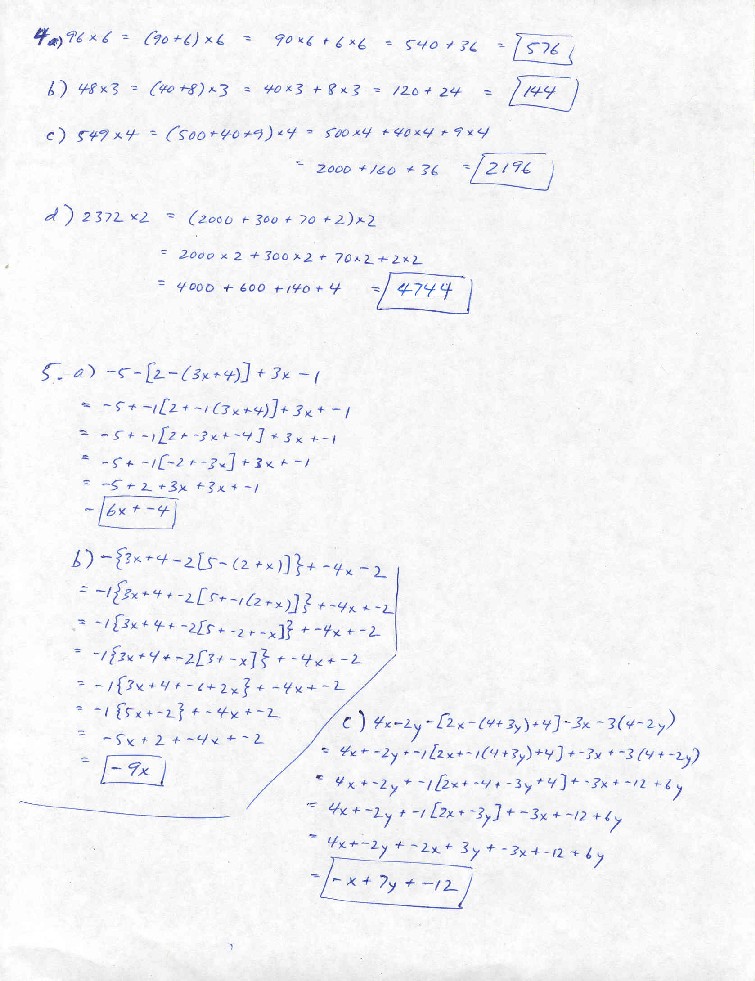 4 a) 96 × 6 = (90+6) × 6 = 90×6 + 6×6 = 540 + 36 = 576
b) 48×3 = (40+8)×3 = 40×3 + 8×3 = 120 + 24 = 144
c) 549×4 = (500+40+9)×4 = 500×4 + 40×4 + 9×4
= 2000 + 160 + 36 = 2196
d) 2372 ×2 = (2000 + 300 + 70 + 2)×2
= 2000 × 2 + 300×2 + 70×2 + 2×2
= 4000 + 600 + 140 + 4 = 4744
5. a) -5-[2-(3x+4)] + 3x -1
= -5+-1[2+-1(3x+4)]+3x+-1
= -5+-1[2+-3x+-4]+3x+-1
= -5+-1[-2+-3x]+3x+-1
= -5+2+3x+3x+-1
= 6x+-4
b) -{3x+4-2[5-(2+x)]}+-4x-2
= -1{3x+4+-2[5+-1(2+x)]}+-4x+-2
= -1{3x+4+-2[5+-2+-x]}+-4x+-2
= -1{3x+4+-2[3+-x]}+-4x+-2
= -1{3x+4+-6+2x}+-4x+-2
= -1{5x+-2}+-4x+-2
= -5x+2+-4x+-2
= -9x
c) 4x-2y-[2x-(4+3y)+4]-3x-3(4-2y)
= 4x+-2y+-1[2x+-1(4+3y)+4]+-3x+-3(4+-2y)
= 4x+-2y+-1[2x+-4+-3y+4]+-3x+-12+6y
= 4x+-2y+-1[2x+-3y]+-3x+-12+6y
= 4x+-2y+-2x+3y+-3x+-12+6y
= -x+7y+-12